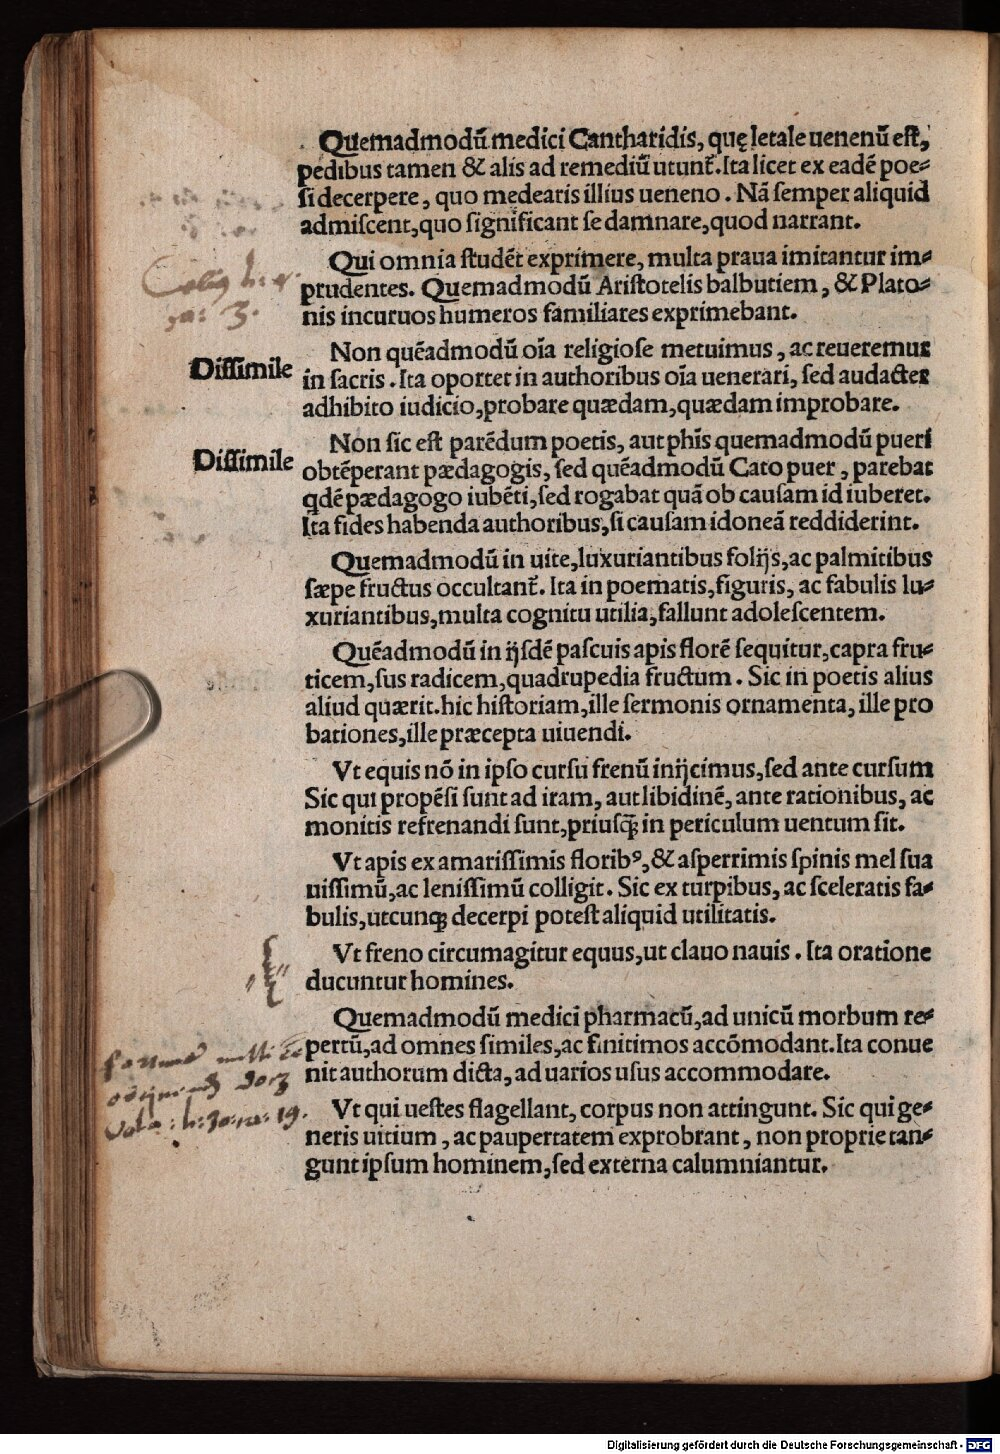 Quemadmodũ medici Cantharidis, quę letale uenenũ eſt,
pedibus tamen & alis ad remediũ utunt̃. Ita licet ex eadẽ poe⸗
ſi decerpere, quo medearis illius ueneno. Nã ſemper aliquid
admiſcent, quo ſignificant ſe damnare, quod narrant.
Qui omnia ſtudẽt exprimere, multa praua imitantur im⸗
prudentes. Quemadmodũ Ariſtotelis balbutiem, & Plato⸗
nis incuruos humeros familiares exprimebant.
Diſſimile
Non quẽadmodũ oĩa religioſe metuimus, ac reueremur
in ſacris. Ita oportet in authoribus oĩa uenerari, ſed audacter
adhibito iudicio, probare quædam, quædam improbare.
Diſſimile
Non ſic eſt parẽdum poetis, aut phĩs quemadmodũ pueri
obtẽperant pædagogis, ſed quẽadmodũ Cato puer, parebat
qdẽ pædagogo iubẽti, ſed rogabat quã ob cauſam id iuberet.
Ita fides habenda authoribus, ſi cauſam idoneã reddiderint.
Quemadmodũ in uite, luxuriantibus folijs, ac palmitibus
ſæpe fructus occultant̃. Ita in poematis, figuris, ac fabulis lu⸗
xuriantibus, multa cognitu utilia, fallunt adoleſcentem.
Quẽadmodũ in ijſdẽ paſcuis apis florẽ ſequitur, capra fru⸗
ticem, ſus radicem, quadrupedia fructum. Sic in poetis alius
aliud quærit. hic hiſtoriam, ille ſermonis ornamenta, ille pro
bationes, ille præcepta uiuendi.
Vt equis nõ in ipſo curſu frenũ inijcimus, ſed ante curſum
Sic qui propẽſi ſunt ad iram, aut libidinẽ, ante rationibus, ac
monitis refrenandi ſunt, priuſq̃ in periculum uentum ſit.
Vt apis ex amariſſimis floribꝰ, & aſperrimis ſpinis mel ſua
uiſſimũ, ac leniſſimũ colligit. Sic ex turpibus, ac ſceleratis fa⸗
bulis, utcunqꝫ decerpi poteſt aliquid utilitatis.
Vt freno circumagitur equus, ut clauo nauis. Ita oratione
ducuntur homines.
Quemadmodũ medici pharmacũ, ad unicũ morbum re⸗
pertũ, ad omnes ſimiles, ac finitimos accõmodant. Ita conue
nit authorum dicta, ad uarios uſus accommodare.
Vt qui ueſtes flagellant, corpus non attingunt. Sic qui ge⸗
neris uitium, ac paupertatem exprobrant, non proprie tan⸗
gunt ipſum hominem, ſed externa calumniantur.
Digitalisierung gefördert durch die Deutsche Forschungsgemeinschaft - DFG